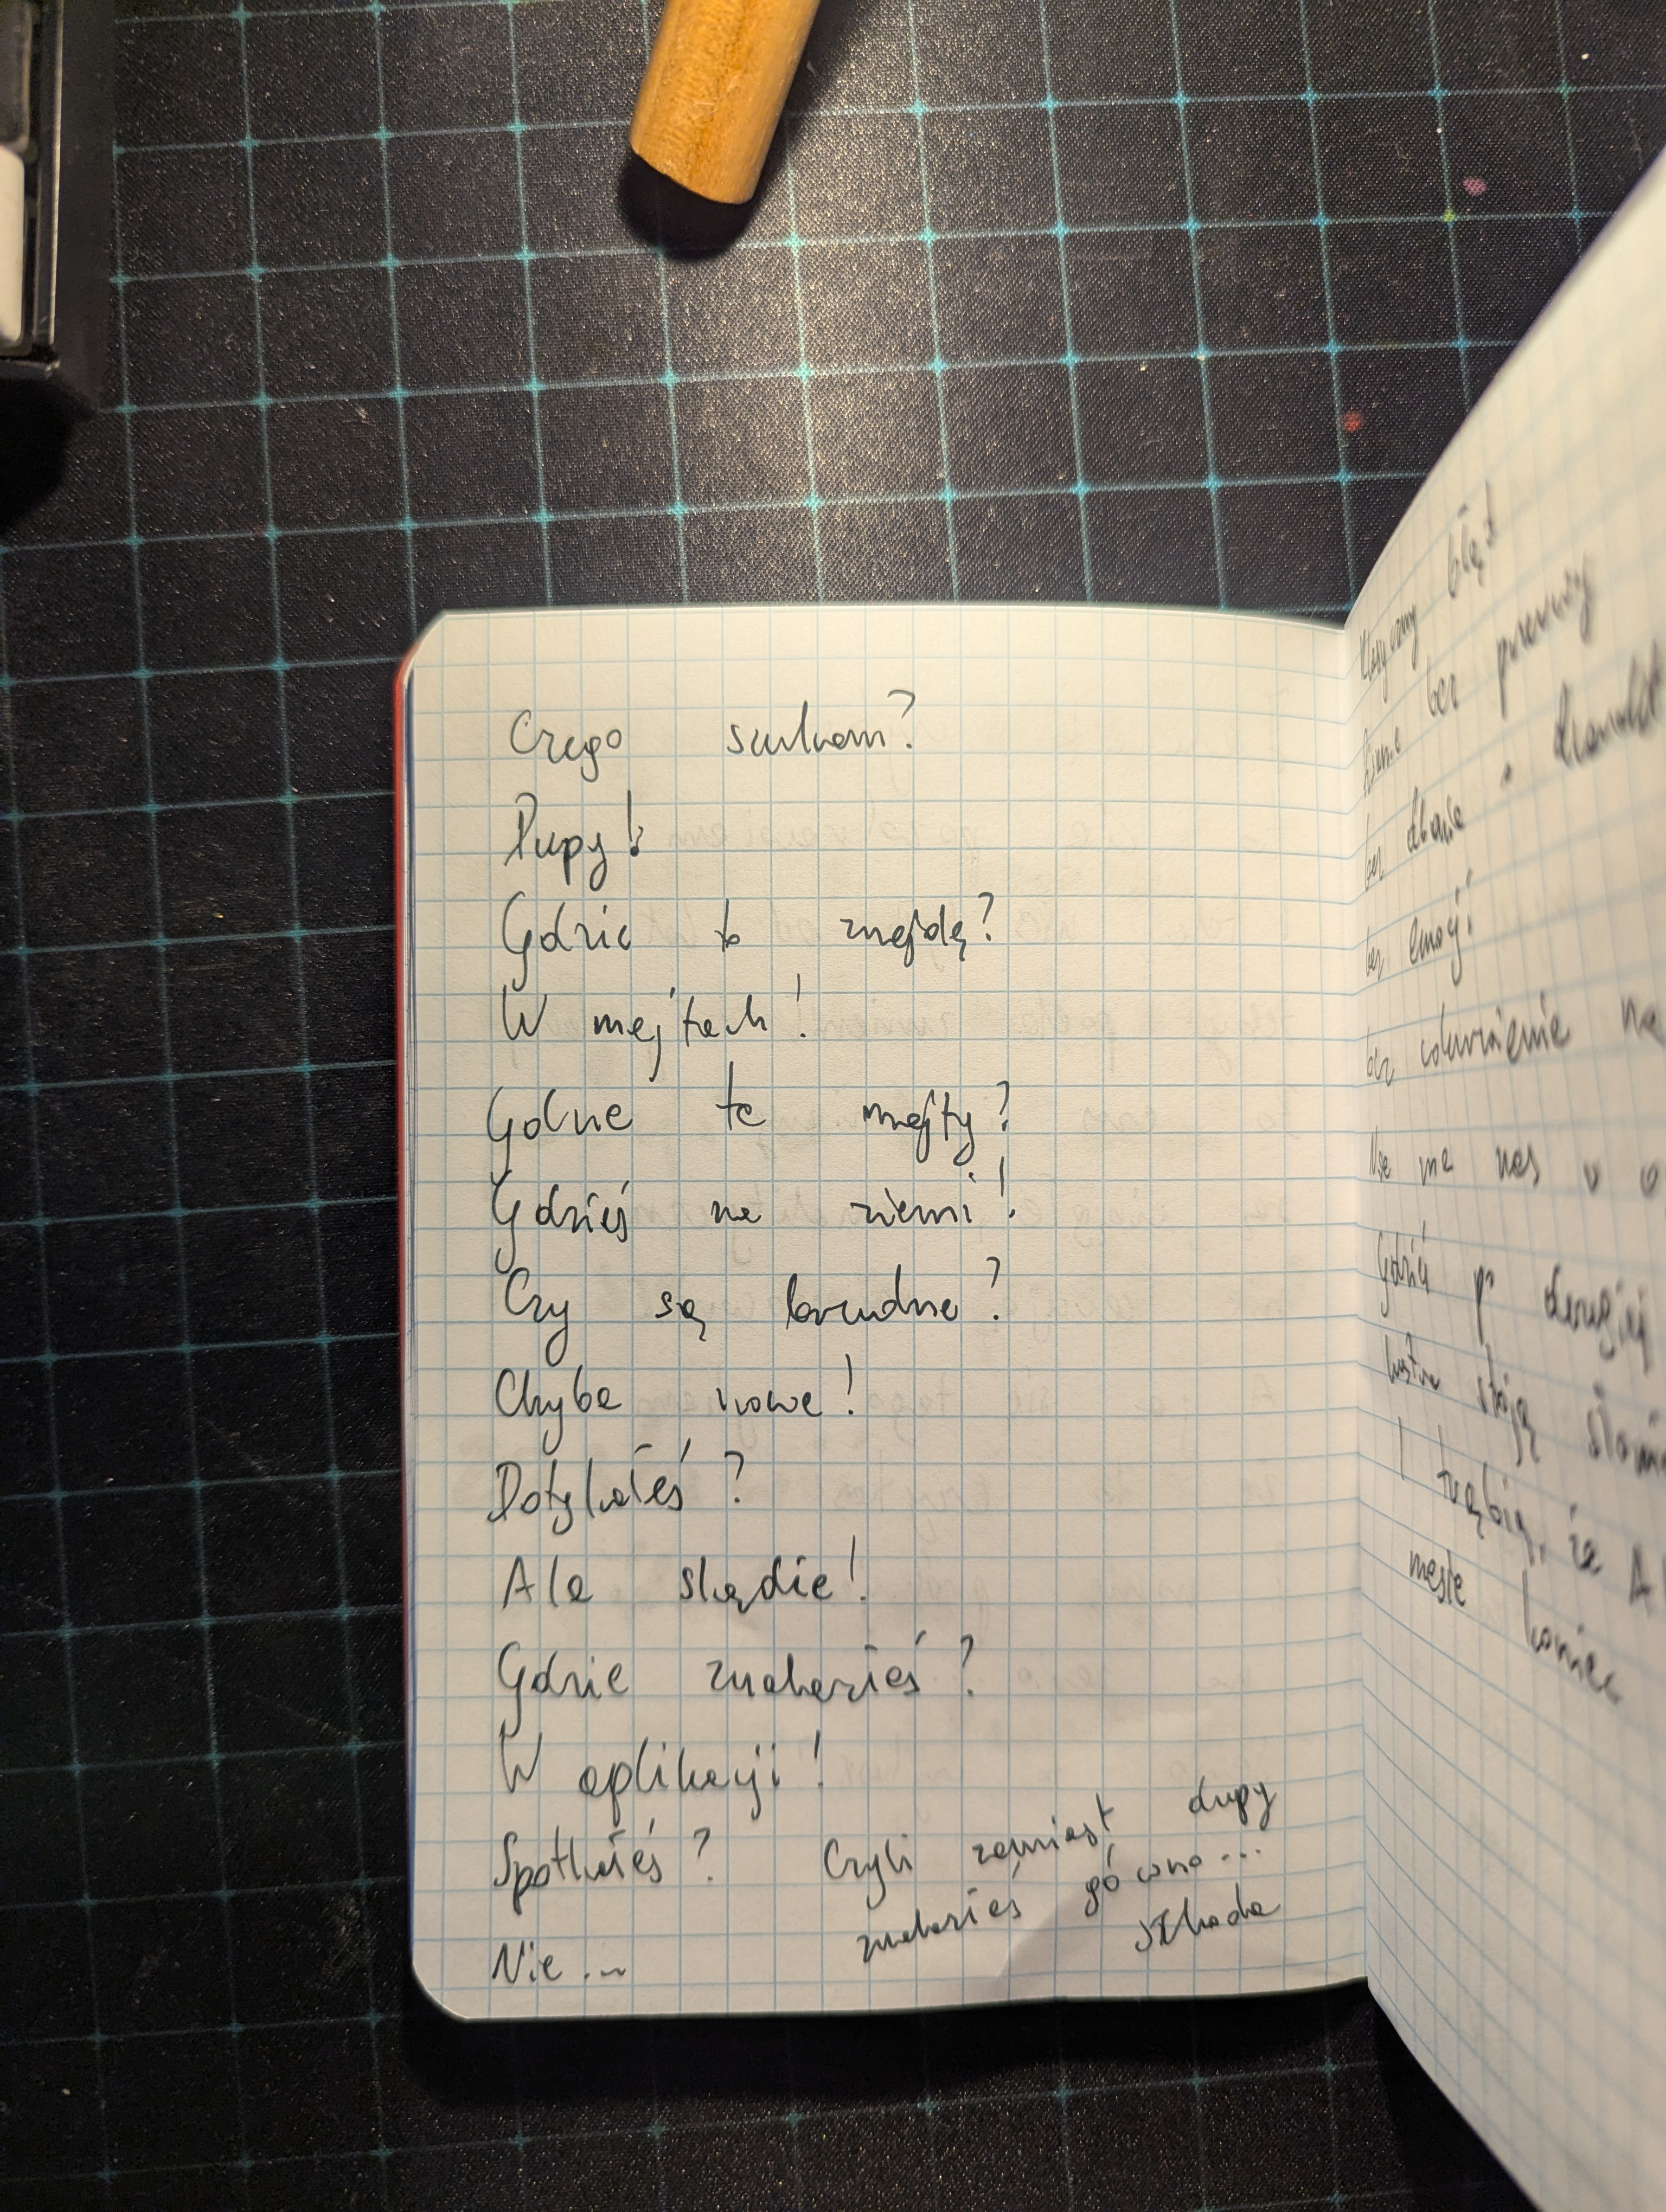 Czego szukam?
Dupy!
Gdzie to znajdę?
W majtach!
Gdzie te majty?
Gdzieś na ziemi!
Czy są brudne?
Chyba nowe!
Dotykałeś?
Ale skądże!
Gdzie znalazłeś?
W aplikacji!
Spotkałeś?
Nie...
Czyli zamiast dupy
znalazłeś gówno...
szkoda
Klasyczny błąd
bez
bez
bez emocji
bez na
nas
Gdzieś po drugiej
stoją
I trąbią, że
koniec